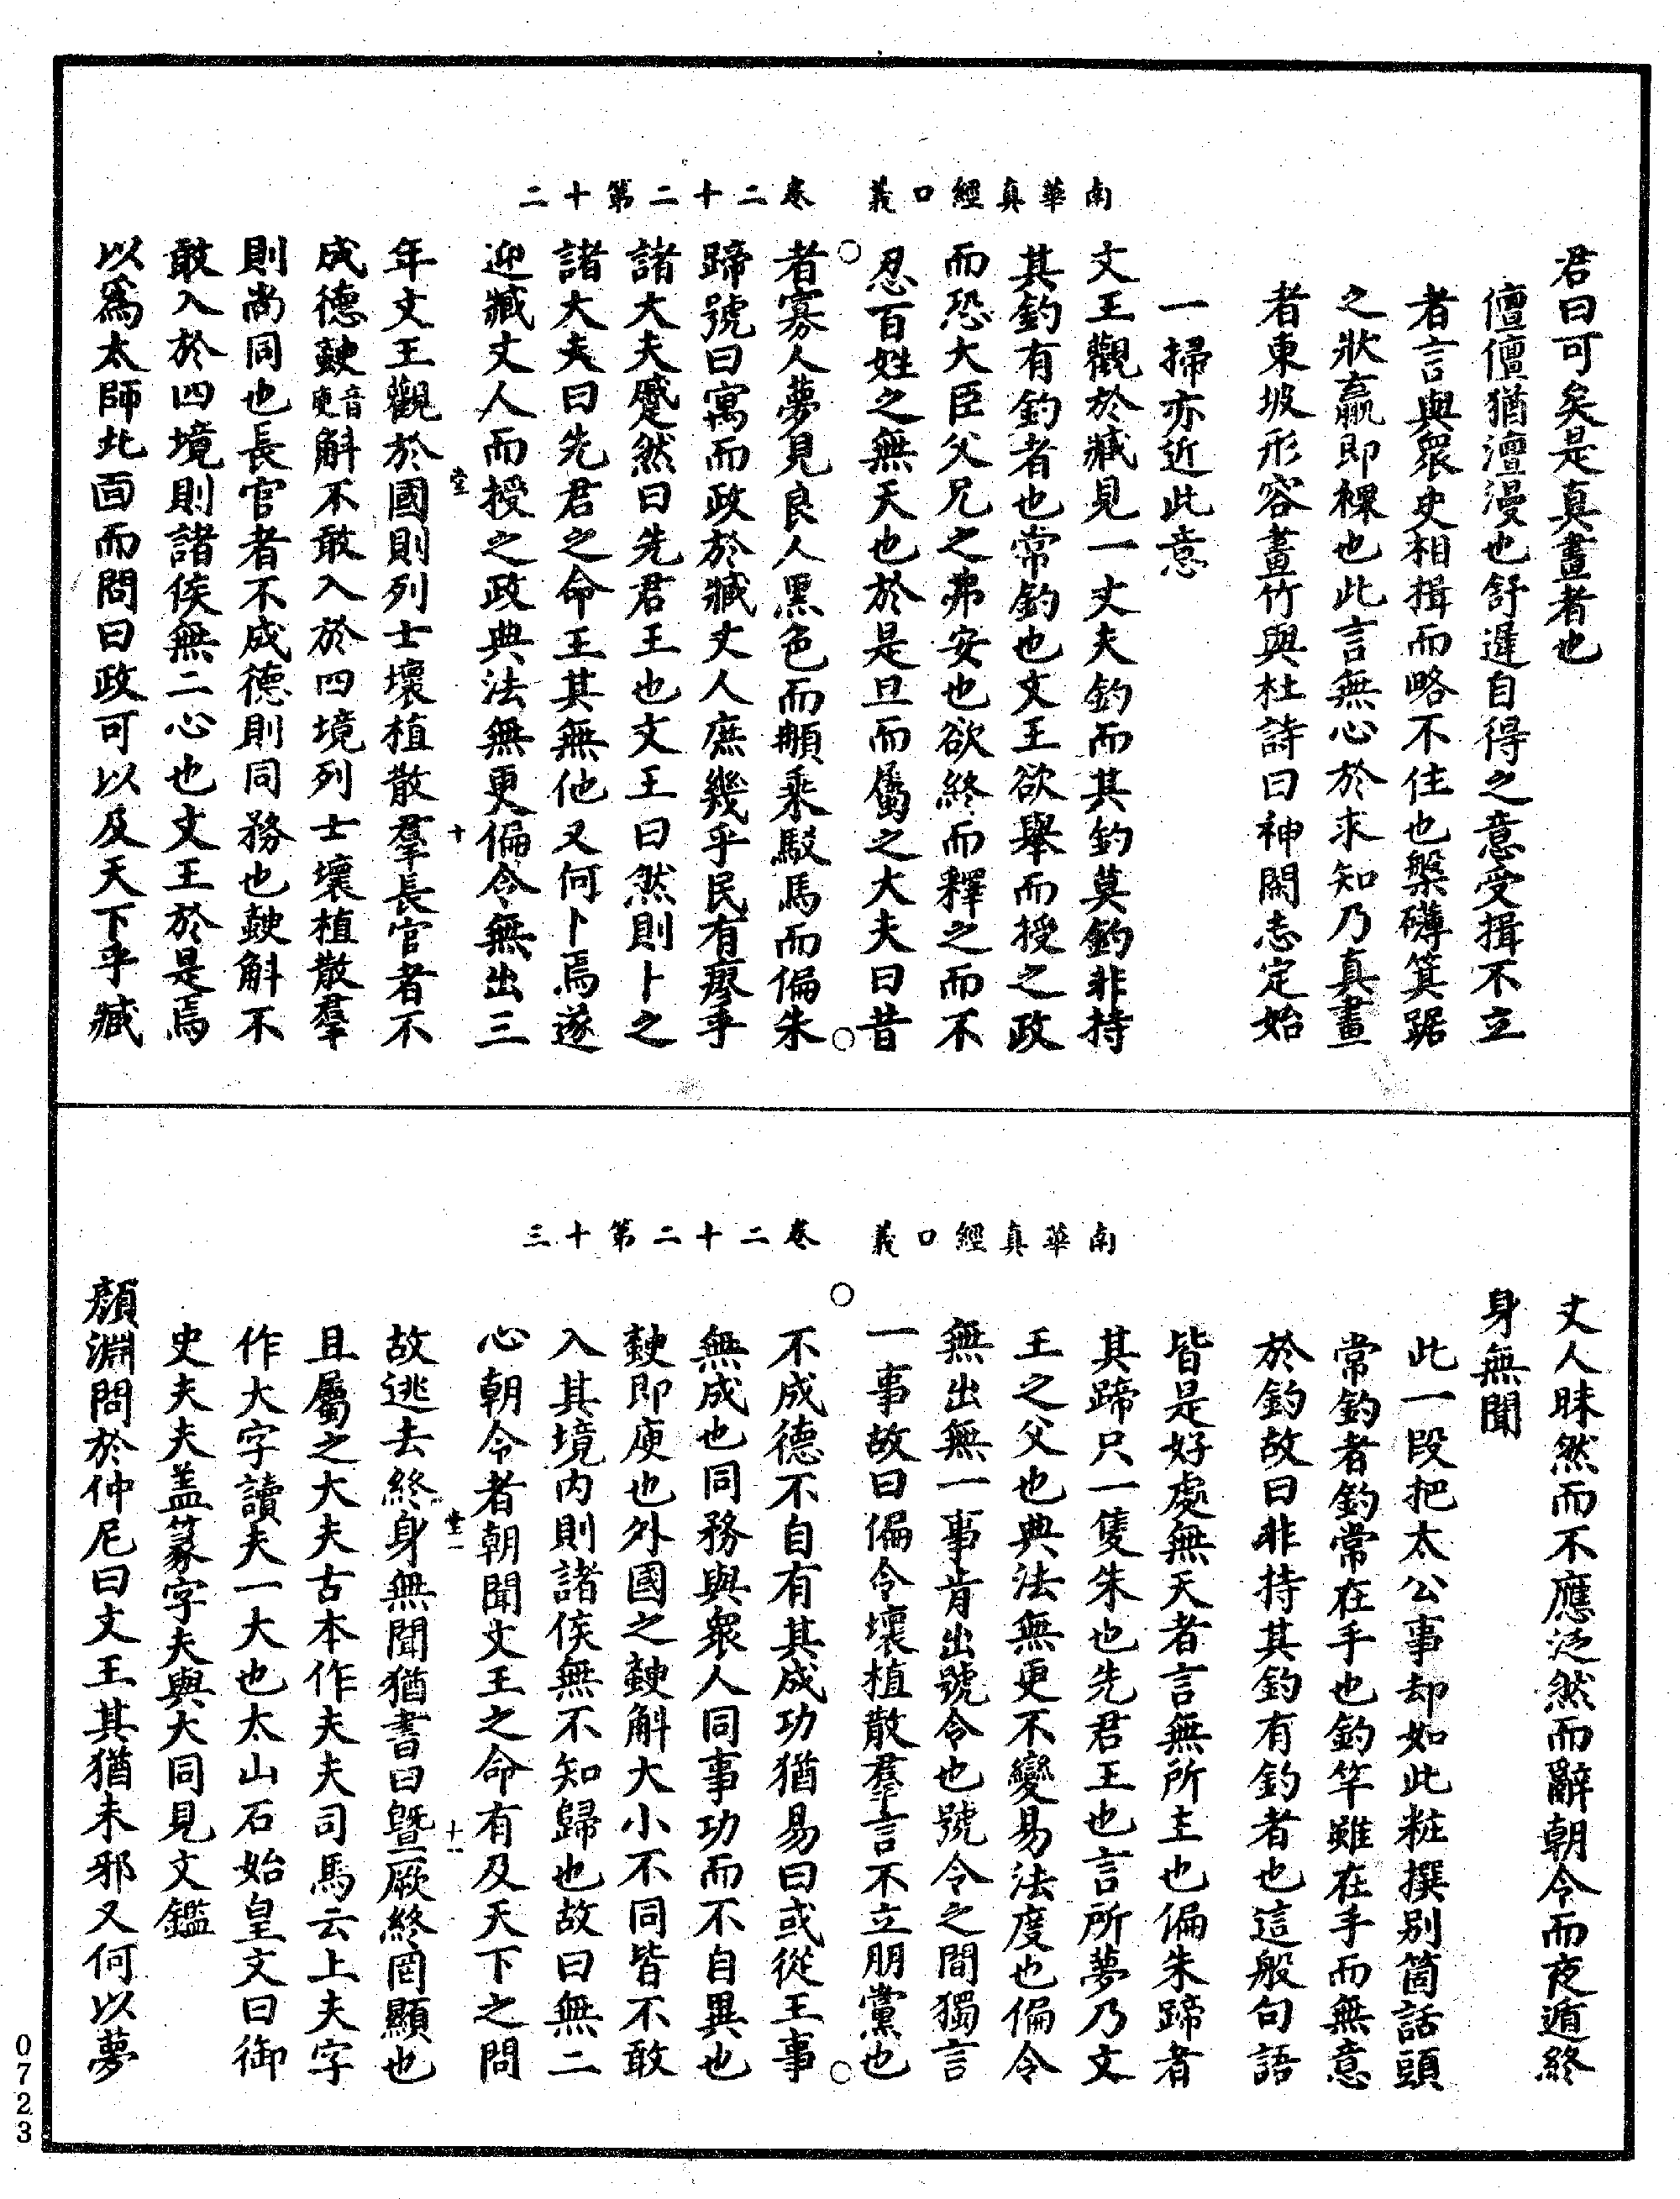 南華真經口義　卷二十二第十二
君曰可矣是真畫者也
儃儃猶澶漫也舒遲自得之意受揖不立
者言與衆史相揖而略不住也槃礴箕踞
之狀臝即裸也此言無心於求知乃真畫
者東坡形容畫竹與杜詩曰神閑志定始
一掃亦近此意
文王觀於臧見一丈夫釣而其釣莫釣非持
其釣有釣者也常釣也文王欲舉而授之政
而恐大臣父兄之弗安也欲終而釋之而不
忍百姓之無天也於是旦而屬之大夫曰昔
者寡人夢見良人黑色而頿乘駁馬而偏朱
蹄號曰寓而政於臧丈人庶幾乎民有瘳乎
諸大夫蹙然曰先君王也文王曰然則卜之
諸大夫曰先君之命王其無他又何卜焉遂
迎臧丈人而授之政典法無更偏令無出三
堂　十
年文王觀於國則列士壞植散羣長官者不
成德䠶音庾斛不敢入於四境列士壞植散羣
則尚同也長官者不成德則同務也䠶斛不
敢入於四境則諸侯無二心也文王於是焉
以爲太師北面而問曰政可以及天下乎臧
南華真經口義　卷二十二第十三
丈人昧然而不應泛然而辭朝令而夜遁終
身無聞
此一段把太公事却如此粧撰別箇話頭
常釣者釣常在手也釣竿雖在手而無意
於釣故曰非持其釣有釣者也這般句語
皆是好處無天者言無所主也偏朱蹄者
其蹄只一隻朱也先君王也言所夢乃文
王之父也典法無更不變易法度也偏令
無出無一事肯出號令也號令之間獨言
一事故曰偏令壞植散羣言不立朋黨也
不成德不自有其成功猶易曰或從王事
無成也同務與衆人同事功而不自異也
䠶即庾也外國之䠶斛大小不同皆不敢
入其境内則諸侯無不知歸也故曰無二
心朝令者朝聞文王之命有及天下之問
堂一　十一
故逃去終身無聞猶書曰暨厥終罔顯也
且屬之大夫古本作夫夫司馬云上夫字
作大字讀夫一大也太山石始皇文曰御
史夫夫盖篆字夫與大同見文鑑
顏淵問於仲尼曰文王其猶未邪又何以夢
0723